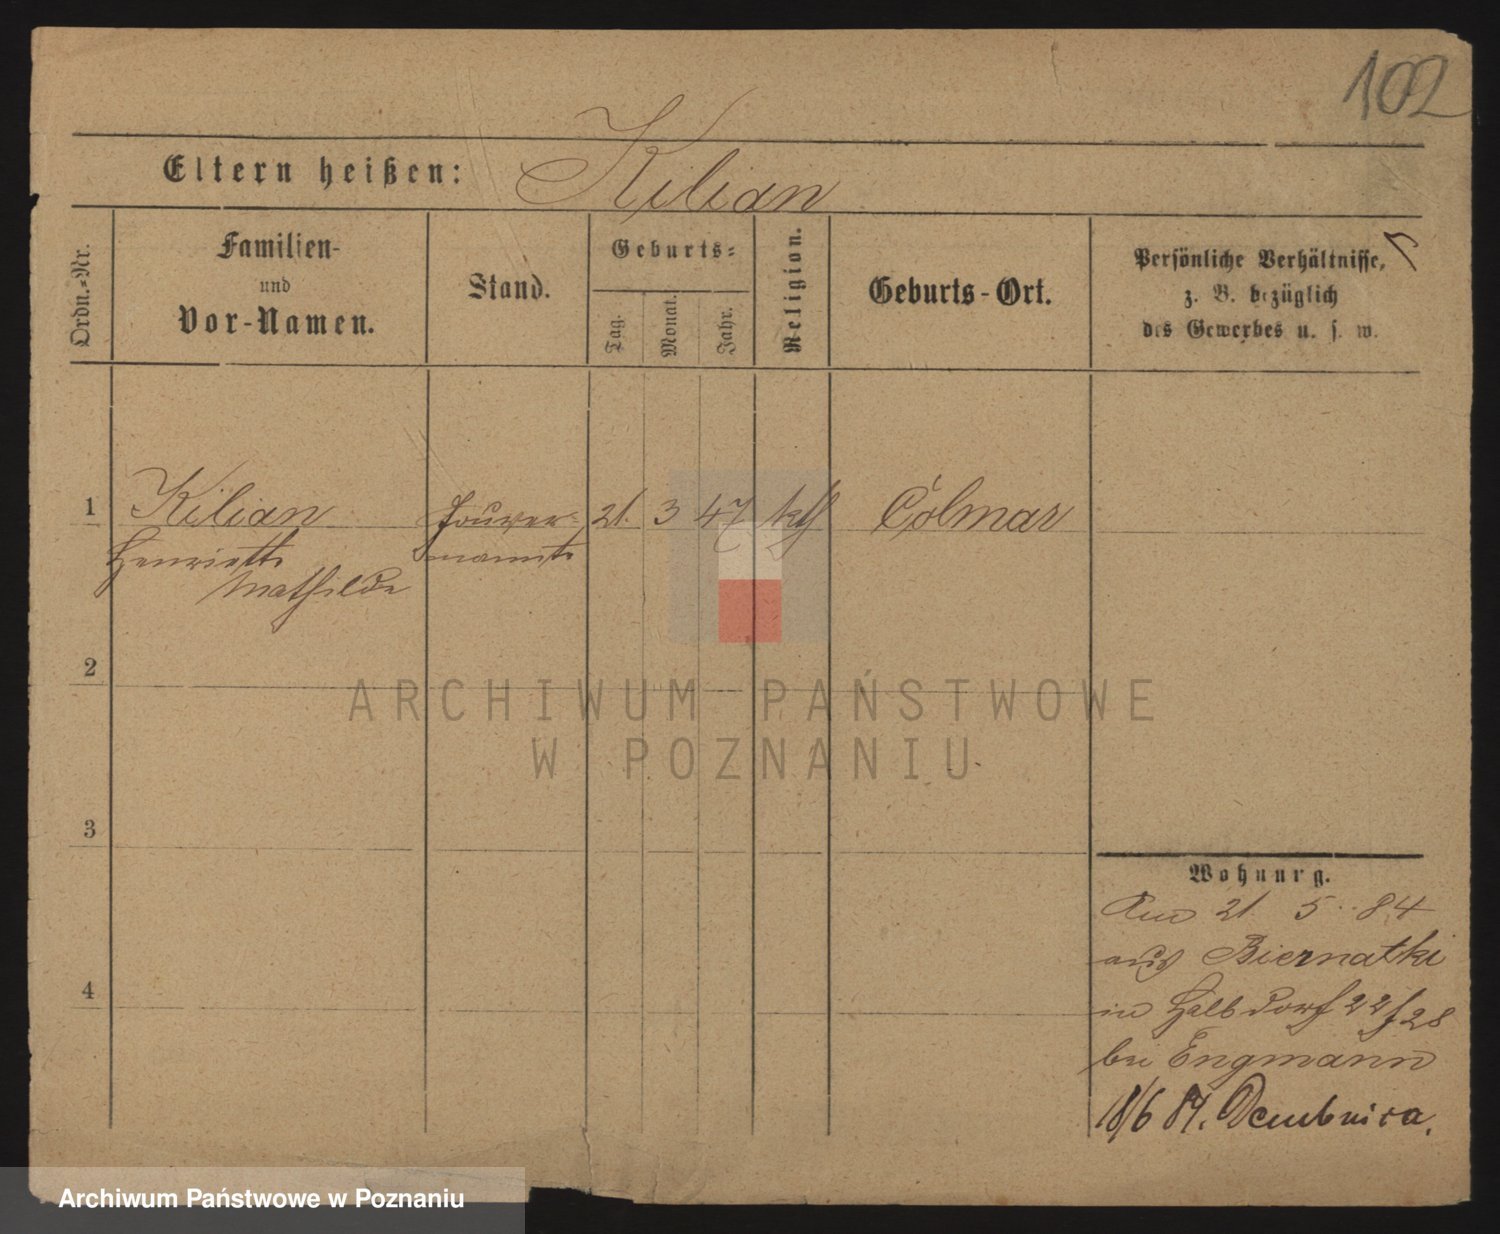 102
Eltern heißen: Kilian
Ordn.-Nr.
Familien-
und
Vor-Namen.
Stand.
Geburts-
Tag.
Monat.
Jahr.
Religion.
Geburts-Ort.
Persönliche Verhältnisse,
z. B. bezüglich
des Gewerbes u. s. w.
1 Kilian 21. 3 47 kth Colmar
Henriette
Mathilde
2
3
4
Wohnung.
Am 21. 5. 84
aus Biernatki
in Halbdorf 22/28
bei Engmann
18/6 84. Dembnica.
ARCHIWUM PAŃSTWOWE
W POZNANIU
Archiwum Państwowe w Poznaniu